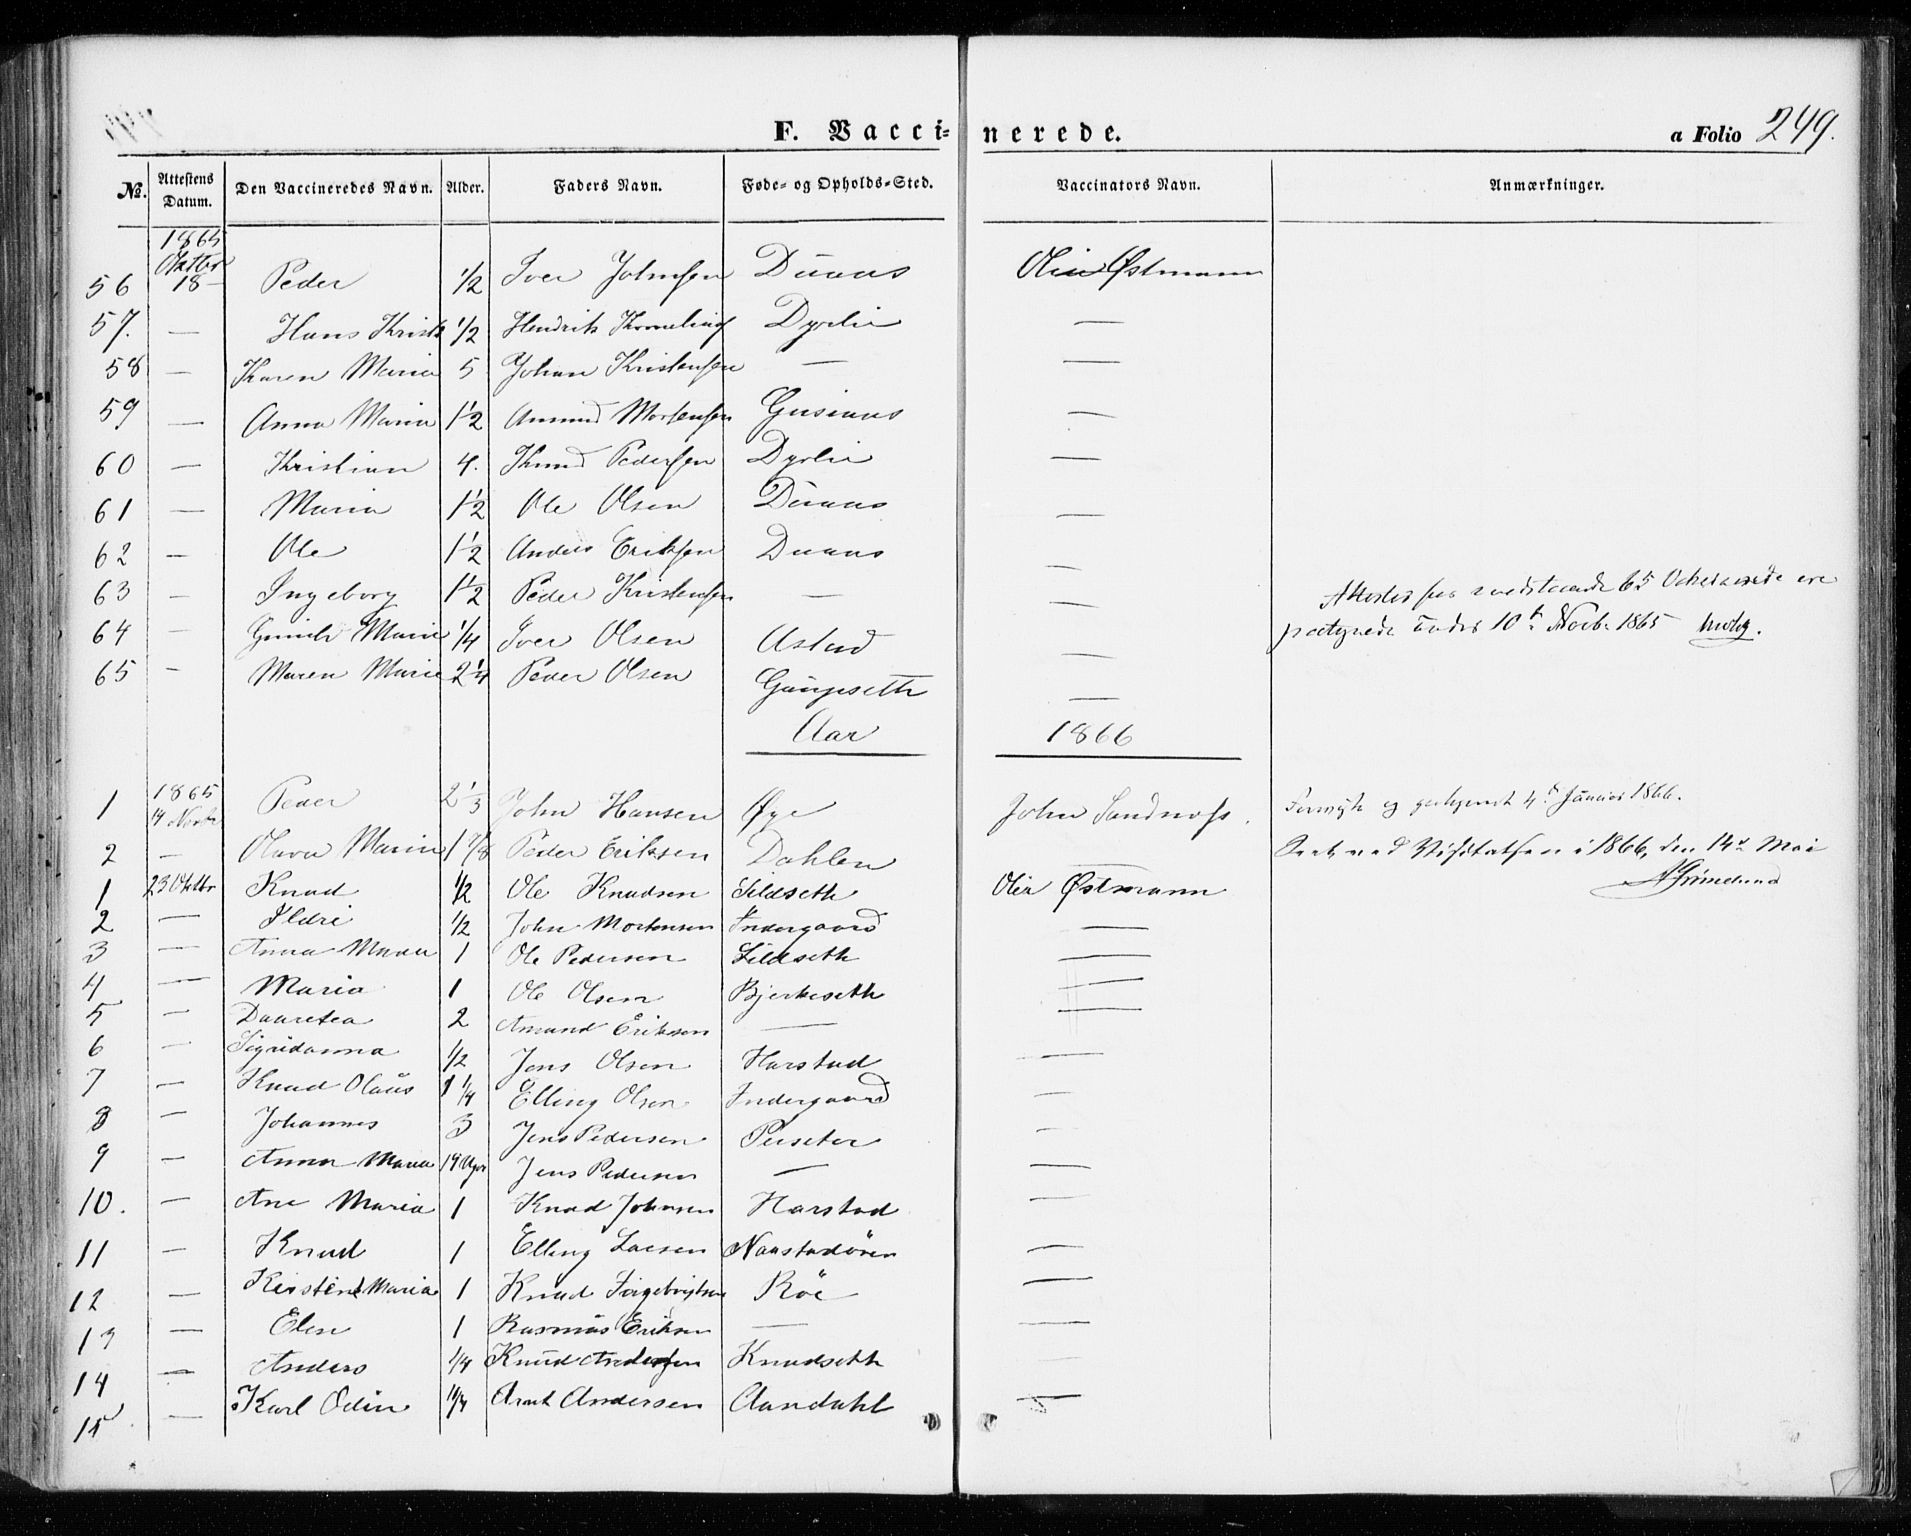 F. Vaccinerede. a Folio 249.
No. Attestens Datum. Den Vaccineredes Navn. Alder. Faders Navn. Føde- og Opholds-Sted. Vaccinators Navn. Anmærkninger.
1865
Oktbr
56 18 Peder 1/2 Iver Johnsen Duaas Østmann
57. — Hans Krist 1/2 Hendrik Dyrlie —
58 — Karen Maria 5 Johan Kristensen — —
59 — Anna Maria 1 1/2 Amund Mortensen Gusiaas —
60 — Kristian 4. Knud Pedersen Dyrlie —
61 — Maria 1 1/2 Ole Olsen Duaas —
62 — Ole 1 1/2 Anders Eriksen Duaas —
63 — Ingeborg 1 1/2 Peder Kristensen — —
64 — Marie 1/4 Iver Olsen Astad —
65 — Maren Marie 2 1/4 Peder Olsen Gaupseth —
65 10 Novb. 1865
Aar 1866
1865
1 14 Novbr Peder 2 1/3 John Hansen Øye John Sandnæss. og 4 Januar 1866.
2 — Olava Maria 1 7/8 Peder Eriksen Dahlen — ved Visitatsen i 1866, den 14de Mai
1 23 Oktbr Knud 1/2 Ole Knudsen Sildseth Østmann
2 — Ildri 1/2 John Mortensen Indergaard —
3 — Anna Maria 1 Ole Pedersen Sildseth —
4 — Maria 1 Ole Olsen Bjerkeseth —
5 — Daaretea 2 Amund Eriksen — —
6 — Sigridanna 1/2 Jens Olsen Harstad —
7 — Knud Olaus 1 1/4 Elling Olsen Indergaard —
8 — Johannes 3 Jens Pedersen —
9 — Anna Maria 14 Uger Jens Pedersen — —
10. — Ane Maria 1 Knud Johnsen Harstad —
11 — Knud 1 Elling Larsen Naastadören —
12 — Kirstine Maria 1 Knud Ingebrigtsen Röe —
13 — Elen 1 Rasmus Eriksen — —
14 — Anders 1/4 Knud Andersen Knudseth —
15 — Karl Odin Arnt Andersen Aandahl —